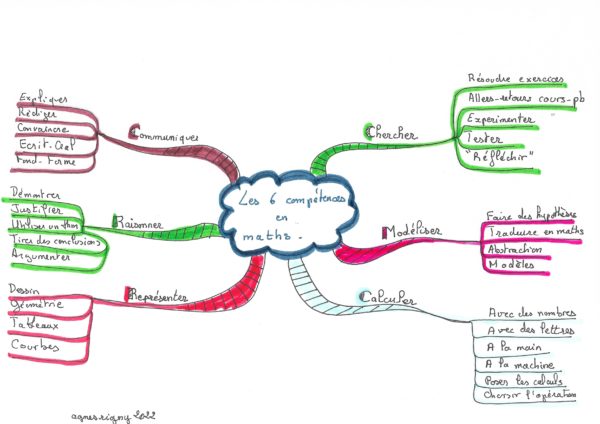 Les 6 compétences
en
maths.
Chercher
Résoudre exercices
Allers-retours cours-pb
Expérimenter
Tester
"Réfléchir"
Modéliser
Faire des hypothèses
Traduire en maths
Abstraction
Modèles
Calculer
Avec des nombres
Avec des lettres
A la main
A la machine
Poser les calculs
Choisir l'opération
Représenter
Dessin
Géométrie
Tableaux
Courbes
Raisonner
Démontrer
Justifier
Utiliser un thm
Tirer des conclusions
Argumenter
Communiquer
Expliquer
Rédiger
Convaincre
Ecrit-Oral
Fond-Forme
agnesrigny 2022